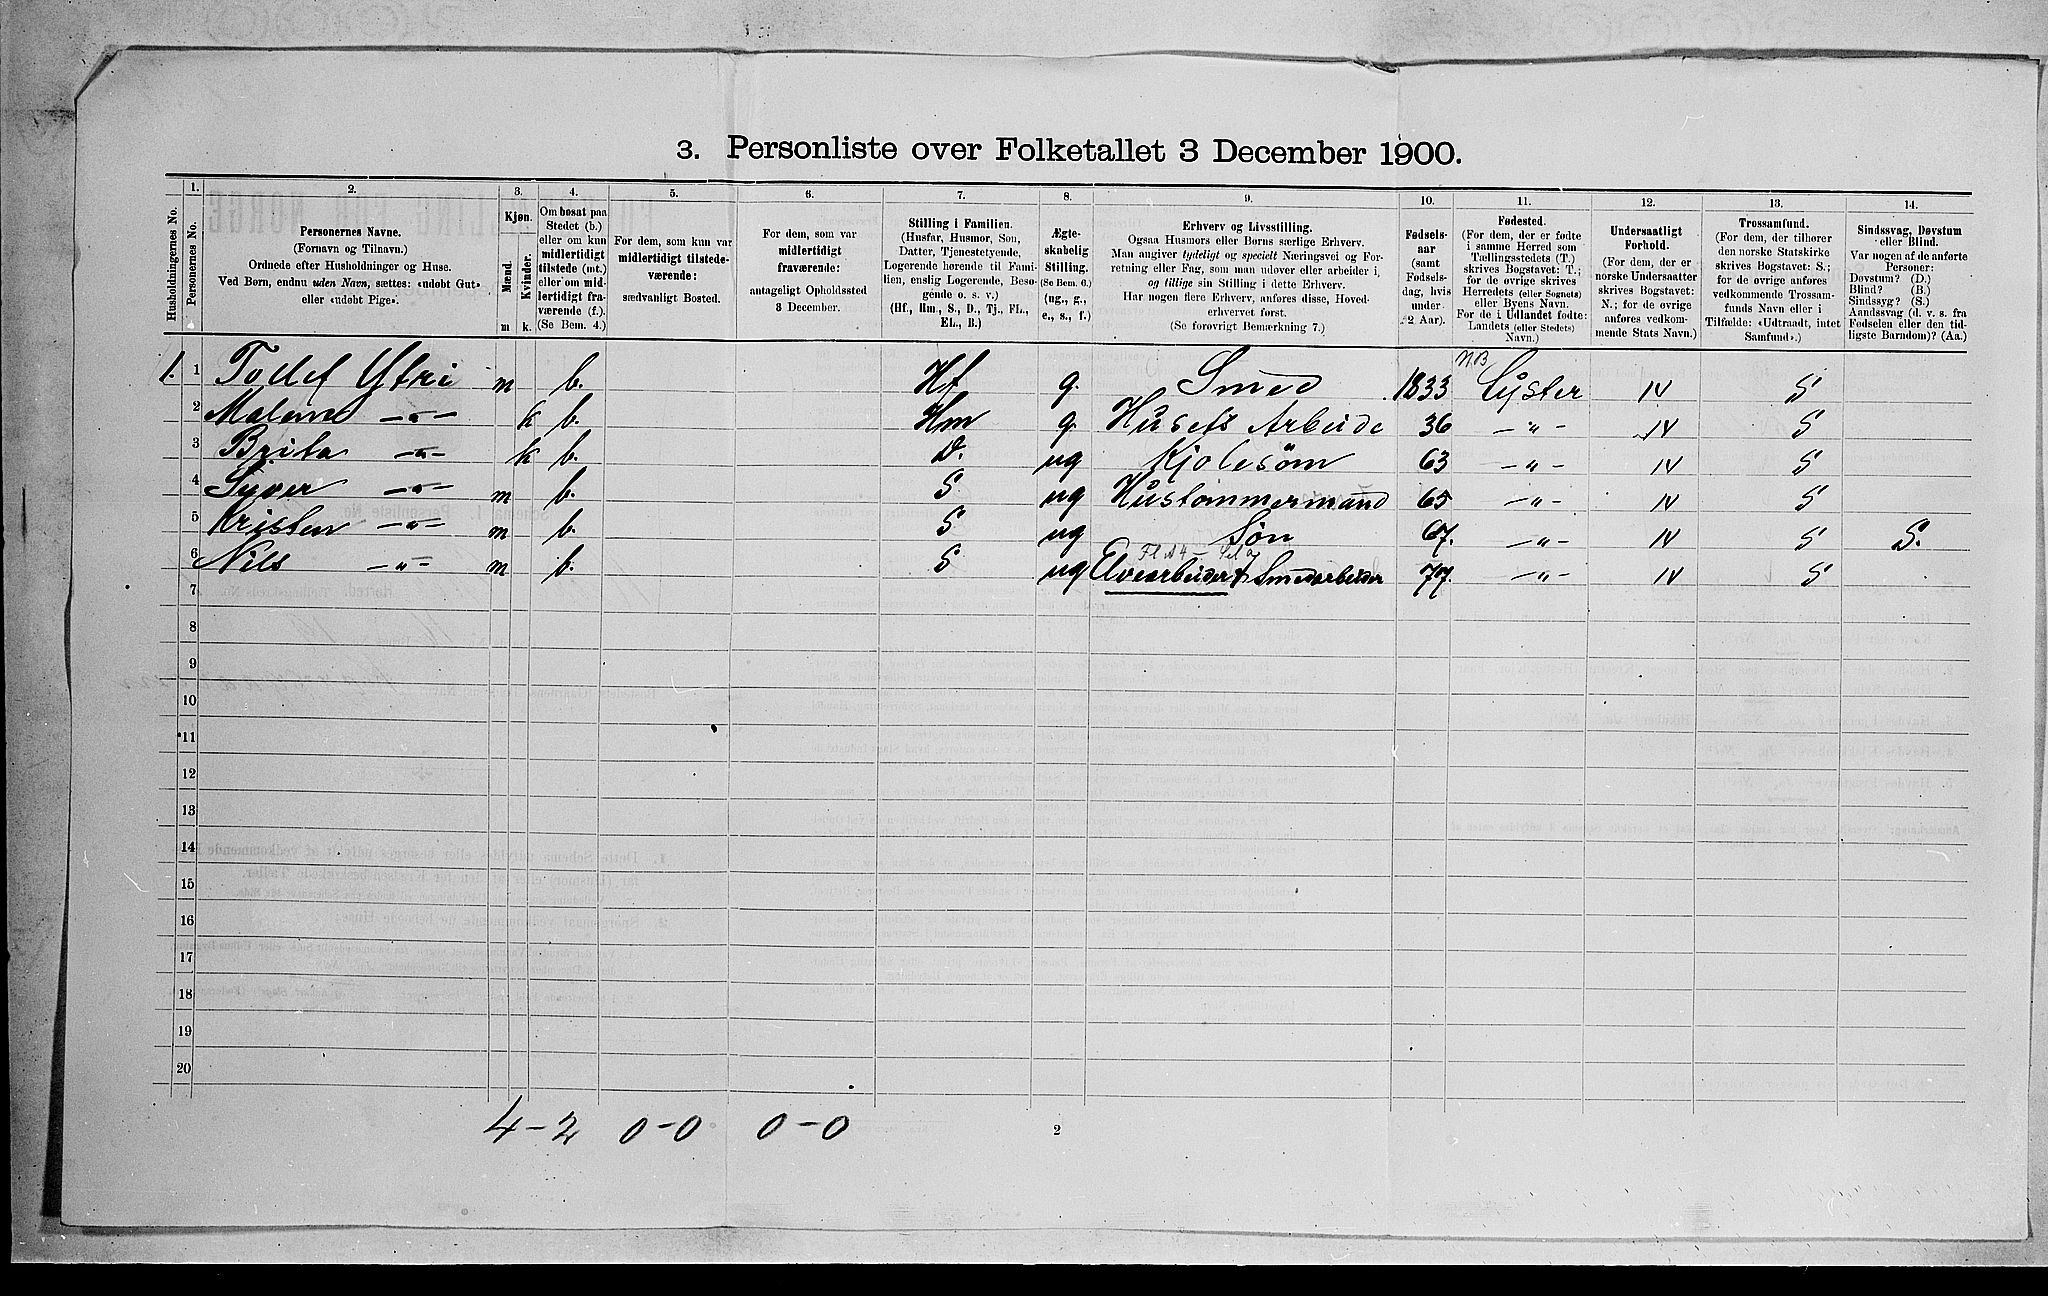 3. Personliste over Folketallet 3 December 1900.
1. 2. 3. 4. 5. 6. 7. 8. 9. 10. 11. 12. 13. 14.
Husholdningernes No.
Personernes No.
Personernes Navne.
(Fornavn og Tilnavn.)
Ordnede efter Husholdninger og Huse.
Ved Børn, endnu uden Navn, sættes: «udøbt Gut»
eller «udøbt Pige».
Kjøn.
Mænd.
Kvinder.
m k.
Om bosat paa
Stedet (b.)
eller om kun
midlertidigt
tilstede (mt.)
eller om mid-
lertidigt fra-
værende (f.).
(Se Bem. 4.)
For dem, som kun var
midlertidigt tilstede-
værende:
sædvanligt Bosted.
For dem, som var
midlertidigt
fraværende:
antageligt Opholdssted
3 December.
Stilling i Familien.
(Husfar, Husmor, Søn,
Datter, Tjenestetyende,
Logerende hørende til Fami-
lien, enslig Logerende, Besø-
gende o. s. v.)
(Hf., Hm., S., D., Tj., FL.,
EL., B.)
Ægte-
skabelig
Stilling.
(Se Bem. 6.)
(ug., g.,
e., s., f.)
Erhverv og Livsstilling.
Ogsaa Husmors eller Børns særlige Erhverv.
Man angiver tydeligt og specielt Næringsvei og For-
retning eller Fag, som man udover eller arbeider i,
og tillige sin Stilling i dette Erhverv.
Har nogen flere Erhverv, anføres disse, Hoved-
erhvervet først.
(Se forøvrigt Bemærkning 7.)
Fødsels-
aar
(samt
Fødsels-
dag, hvis
under
2 Aar).
Fødested.
(For dem, der er fødte
i samme Herred som
Tællingsstedets (T.)
skrives Bogstavet: T.;
for de øvrige skrives
Herredets (eller Sognets)
eller Byens Navn.
For de i Udlandet fødte:
Landets (eller Stedets)
Navn.)
Undersaatligt
Forhold.
(For dem, der er
norske Undersaatter
skrives Bogstavet:
N.; for de øvrige
anføres vedkom-
mende Stats Navn.)
Trossamfund.
(For dem, der tilhører
den norske Statskirke
skrives Bogstavet: S.;
for de øvrige anføres
vedkommende Trossam-
funds Navn eller i
Tilfælde: «Udtraadt, intet
Samfund».)
Sindssvag, Døvstum
eller Blind.
Var nogen af de anførte
Personer:
Døvstum? (D.)
Blind? (B.)
Sindssyg? (S.)
Aandssvag (d. v. s. fra
Fødselen eller den tid-
ligste Barndom)? (Aa.)
1. 1 Todef Ytri m b. Hf g. Smed 1833 NB Lyster N S
2 Malene —"— k b. Hm g. Husets Arbeide 36 —"— N S
3 Brita —"— k b. D. ug Kjolesøm 63 —"— N S
4 Syver —"— m b. S ug Hustømmermand 65 —"— N S
5 Kristen —"— m b. S ug Søn 67. —"— N S S.
6 Nils —"— m b. S ug Elvearbeider & Smedarbeider 77. —"— N S
7
8
9
10
11
12
13
14
15
16
17
18
19
20
4-2 0-0 0-0
2